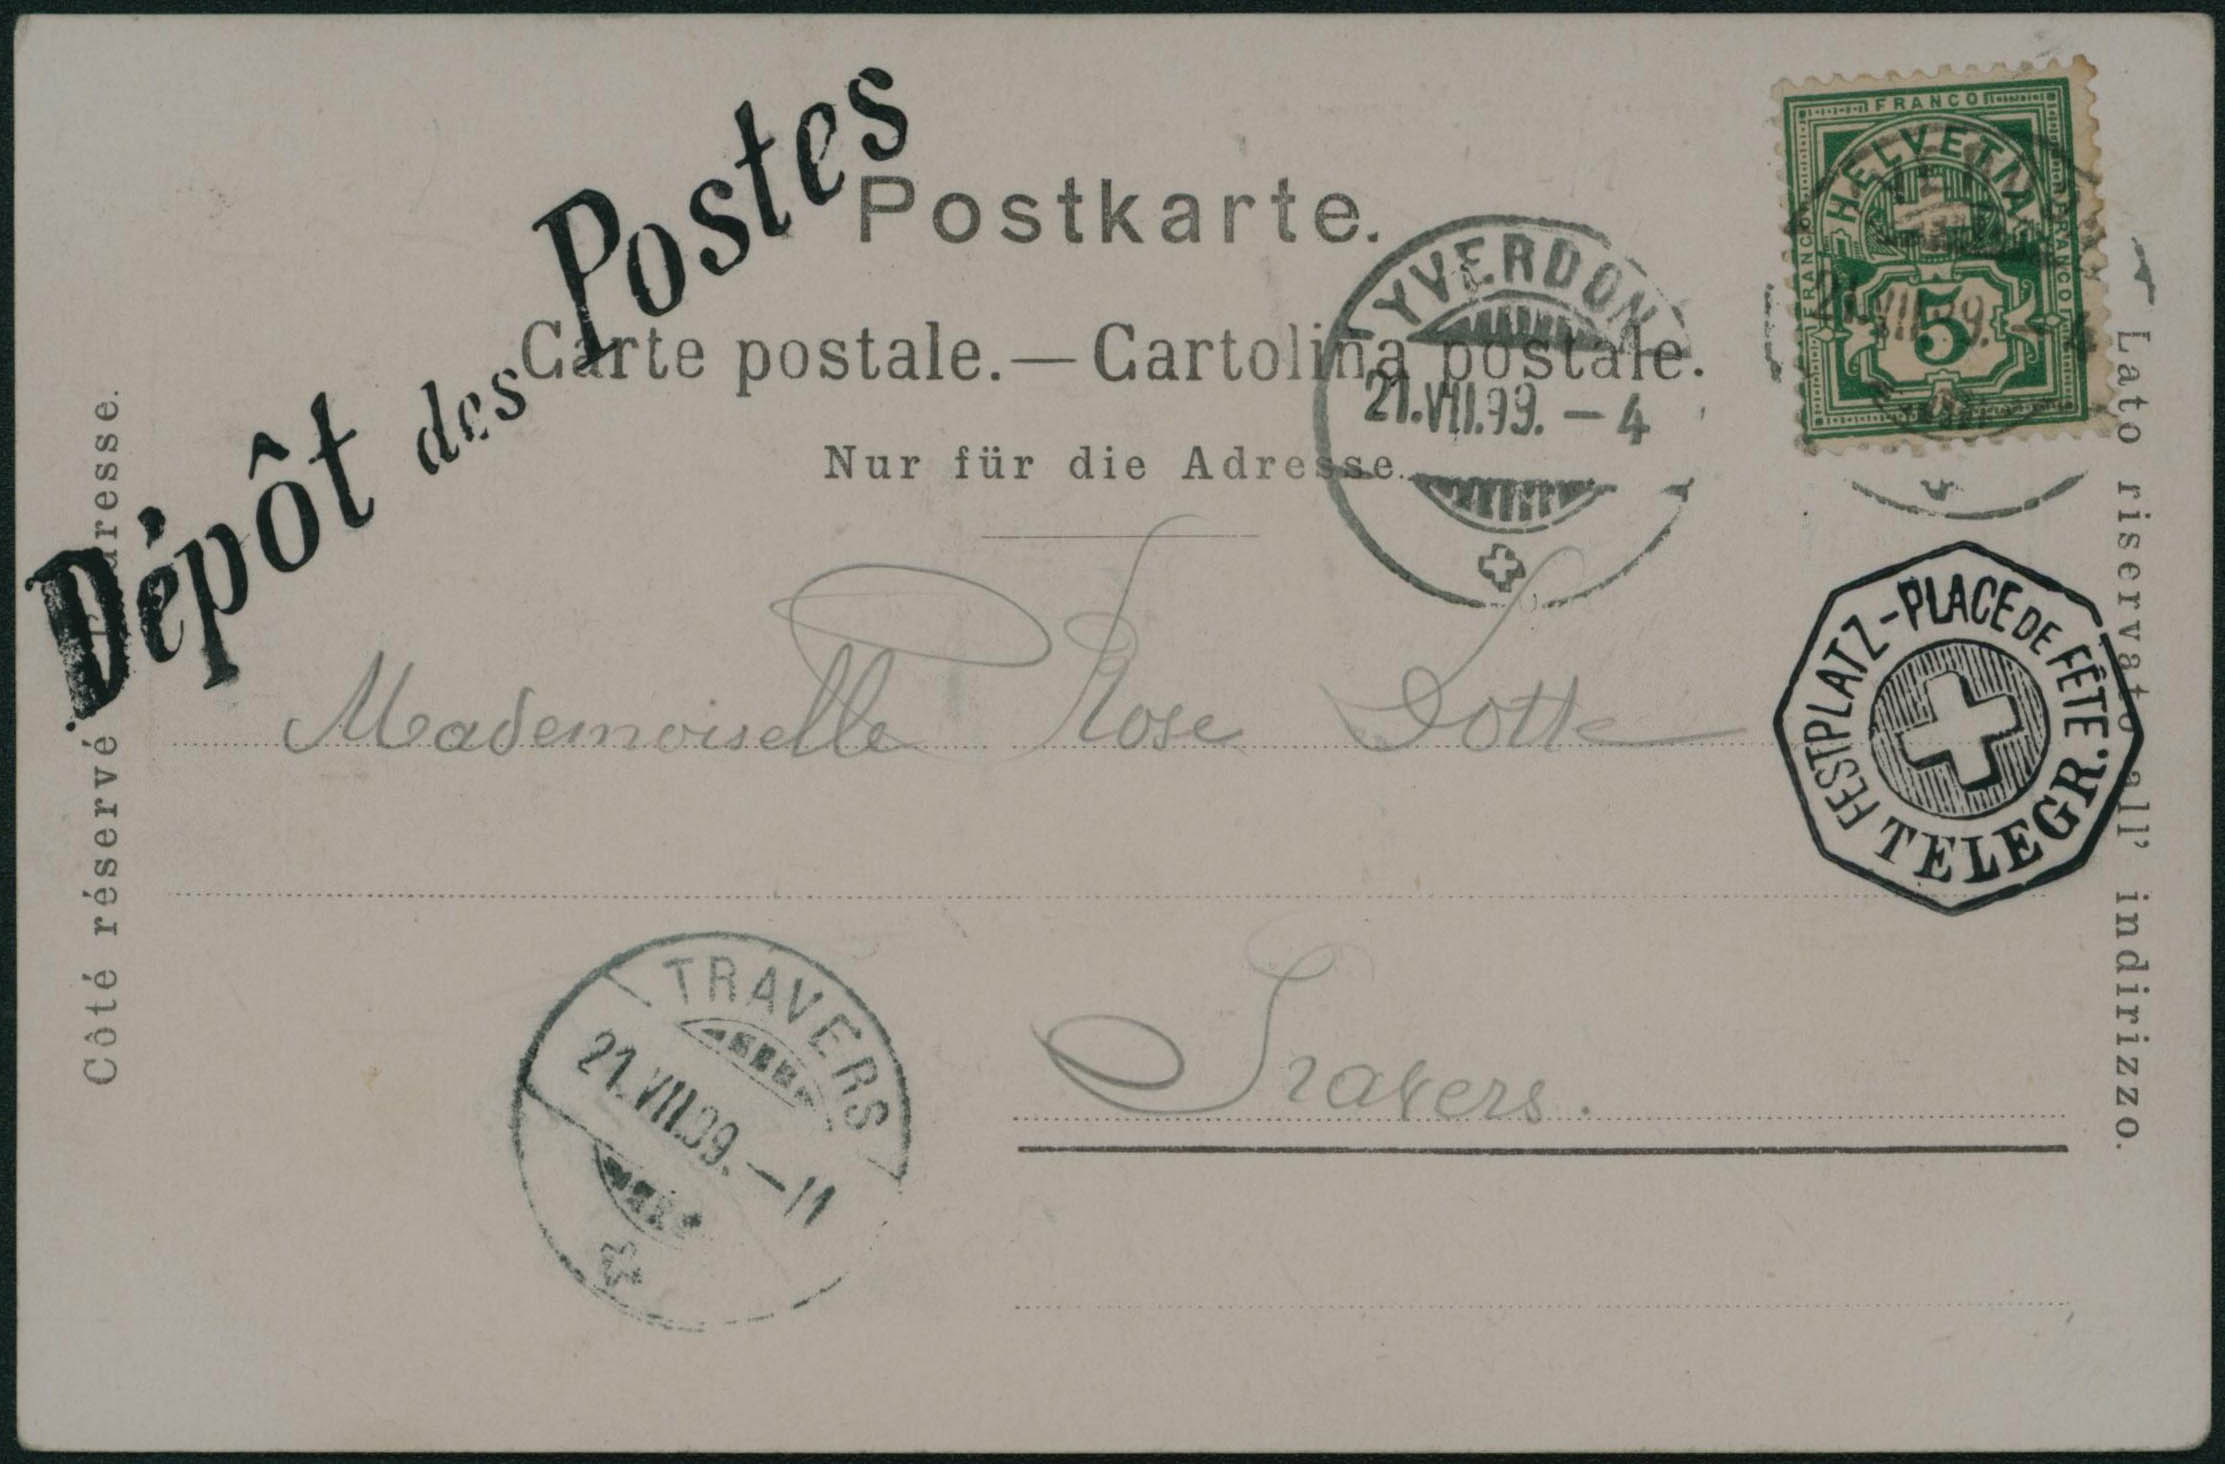 Dépôt des Postes
Postkarte.
Carte postale. — Cartolina postale.
Nur für die Adresse.
Côté réservé
Lato riservato all' indirizzo.
FRANCO
FRANCO
FRANCO
HELVETIA
5
21.VII.99. – 4
YVERDON
21.VII.99. – 4
FESTPLATZ - PLACE DE FÊTE.
TELEGR.
Mademoiselle Rose Jotte
Travers.
TRAVERS
21.VII.99. – 11